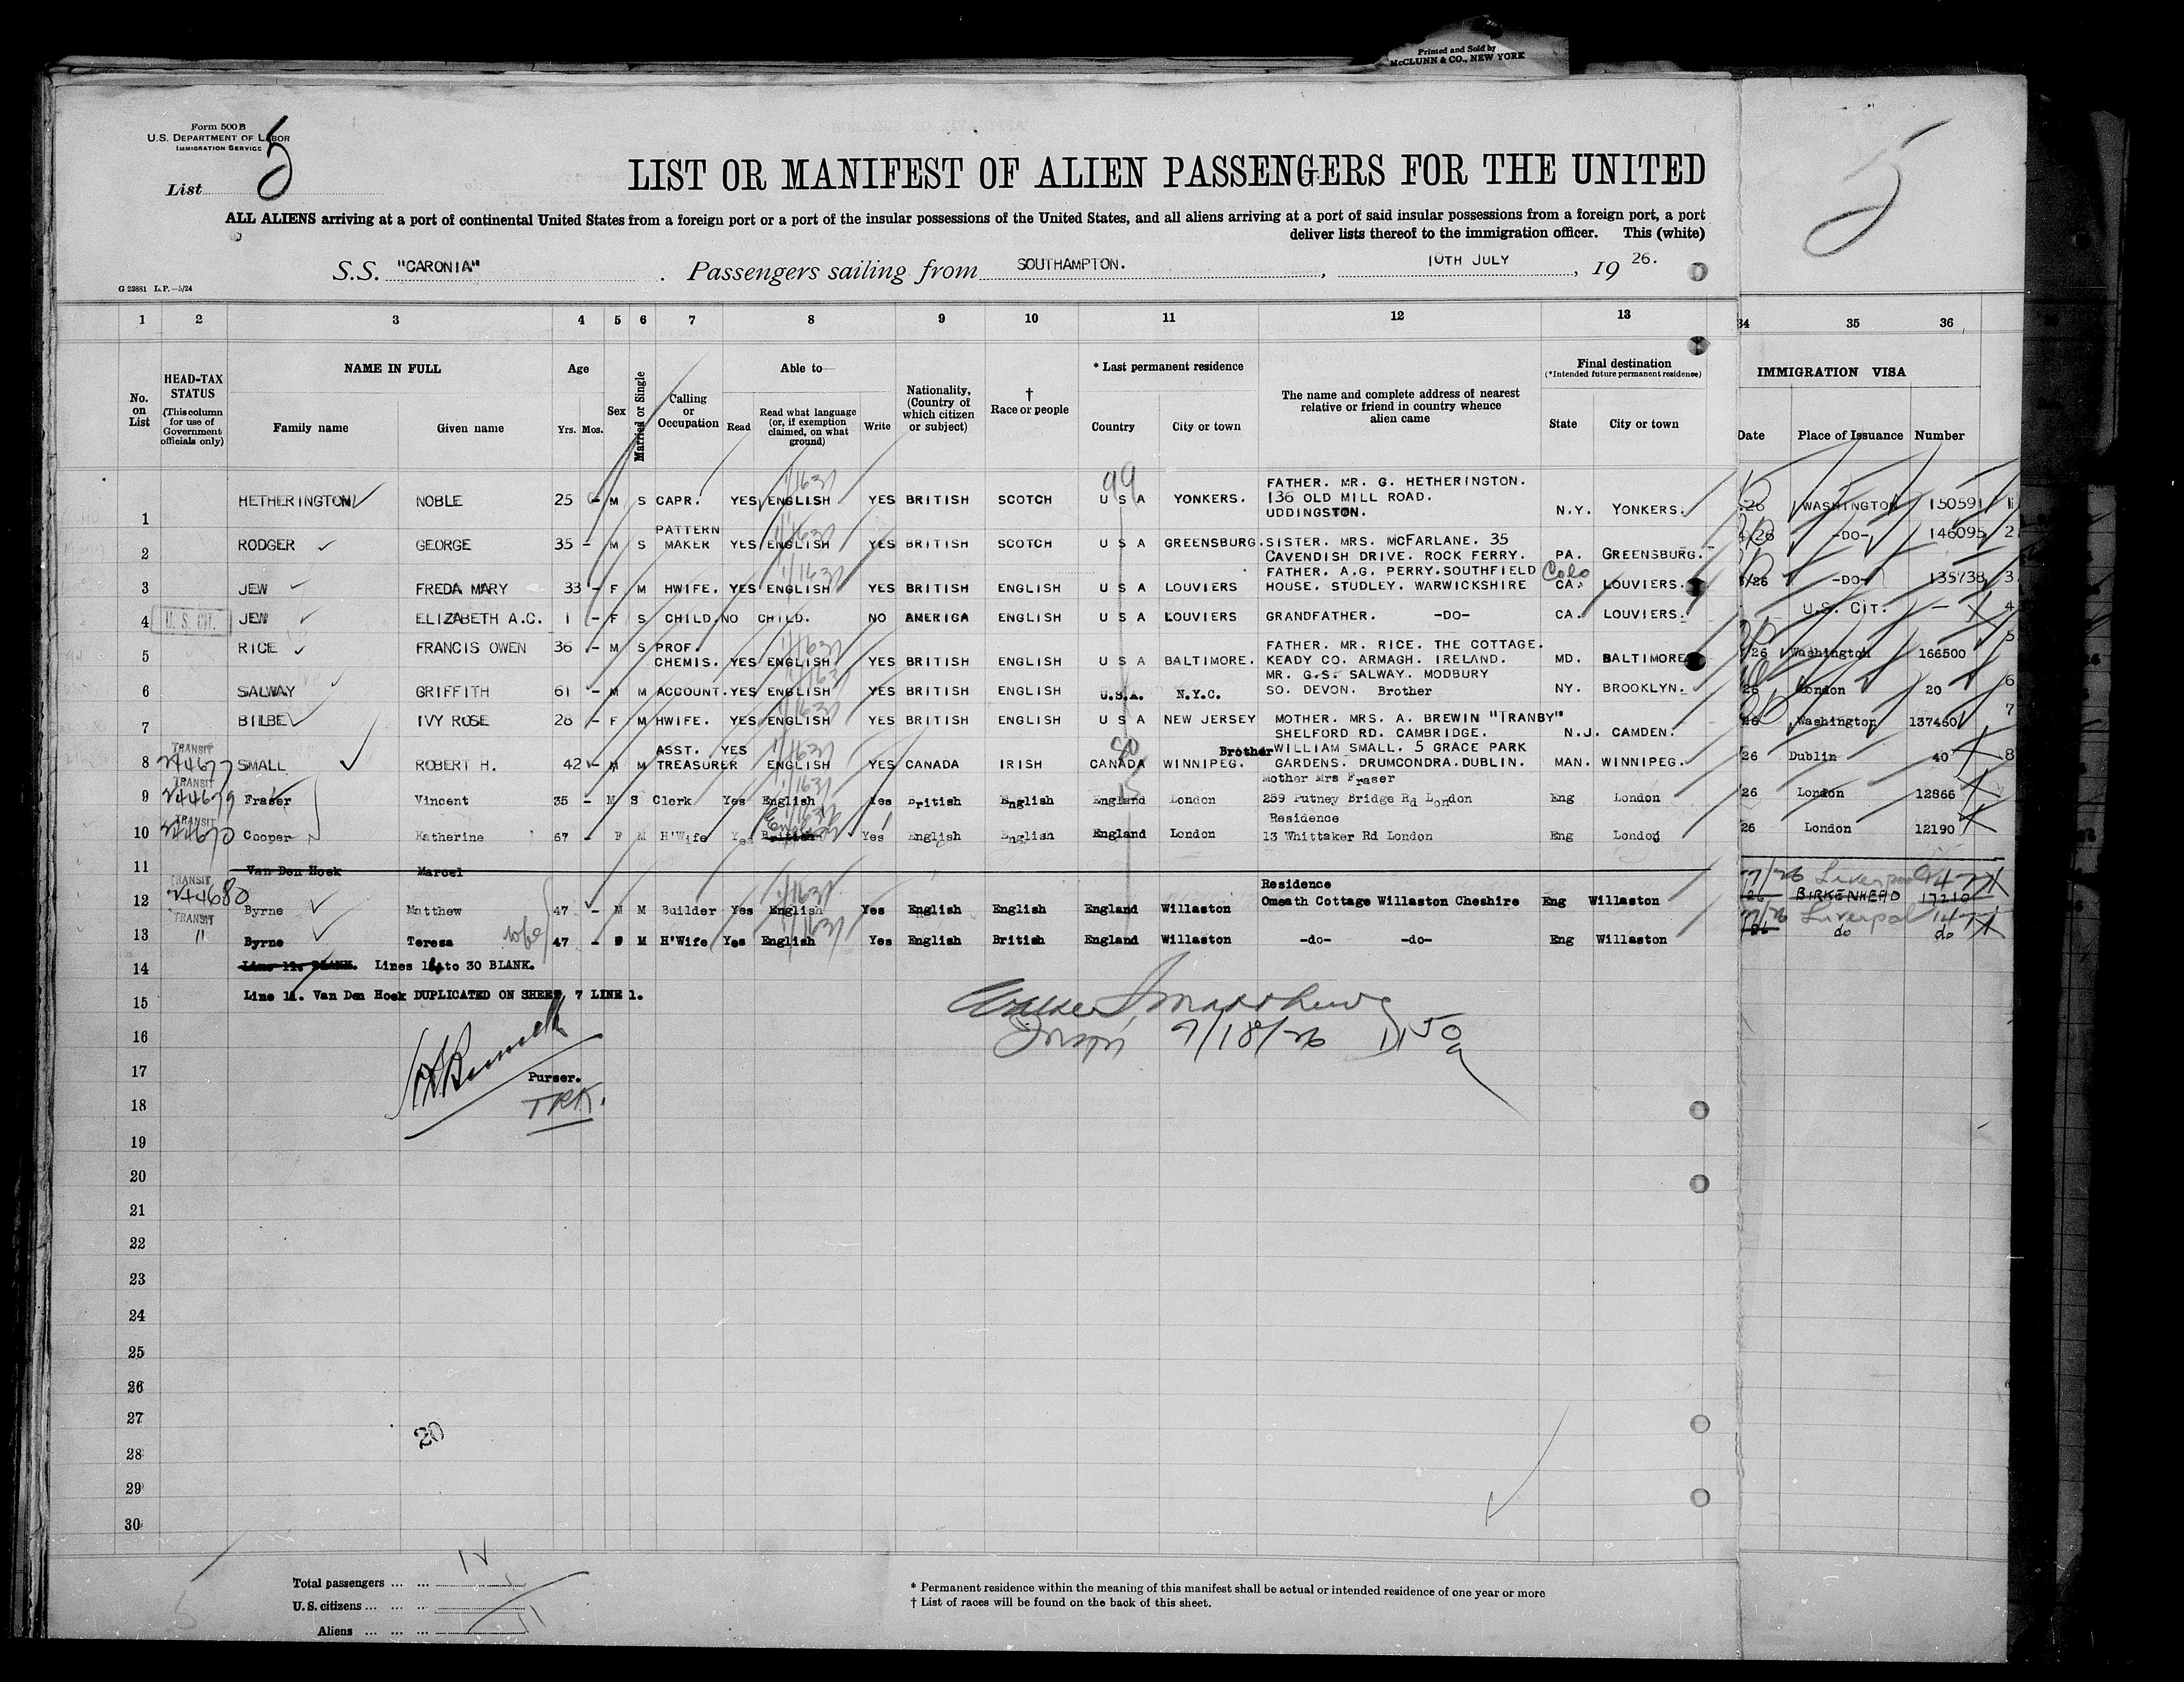 Printed and Sold by
McCLUNN & CO., NEW YORK
Form 500 B
U.S. DEPARTMENT OF LABOR
IMMIGRATION SERVICE
List 5
5
LIST OR MANIFEST OF ALIEN PASSENGERS FOR THE UNITED
ALL ALIENS arriving at a port of continental United States from a foreign port or a port of the insular possessions of the United States, and all aliens arriving at a port of said insular possessions from a foreign port, a port
deliver lists thereof to the immigration officer. This (white)
S.S. "CARONIA" . Passengers sailing from SOUTHAMPTON. , 10TH JULY , 19 26.
G 23881 L.P.—5/24
1 2 3 4 5 6 7 8 9 10 11 12 13 34 35 36
No. on List
HEAD-TAX STATUS
(This column for use of Government officials only)
NAME IN FULL
Family name Given name
Age
Yrs. Mos.
Sex
Married or Single
Calling or Occupation
Able to—
Read Read what language (or, if exemption claimed, on what ground) Write
Nationality, (Country of which citizen or subject)
† Race or people
* Last permanent residence
Country City or town
The name and complete address of nearest relative or friend in country whence alien came
Final destination
(*Intended future permanent residence)
State City or town
IMMIGRATION VISA
Date Place of Issuance Number
99
1 HETHERINGTON NOBLE 25 - M S CAPR. YES ENGLISH YES BRITISH SCOTCH U S A YONKERS. FATHER. MR. G. HETHERINGTON. 136 OLD MILL ROAD. UDDINGSTON. N.Y. YONKERS. 26 WASHINGTON 150591 1
2 RODGER GEORGE 35 - M S PATTERN MAKER YES ENGLISH YES BRITISH SCOTCH U S A GREENSBURG. SISTER. MRS. McFARLANE. 35 CAVENDISH DRIVE. ROCK FERRY. PA. GREENSBURG. 26 -DO- 146095 2
3 JEW FREDA MARY 33 - F M HWIFE. YES ENGLISH YES BRITISH ENGLISH U S A LOUVIERS FATHER. A.G. PERRY. SOUTHFIELD HOUSE. STUDLEY. WARWICKSHIRE Colo CA. LOUVIERS. 26 -DO- 135738 3
4 U. S. CIT. JEW ELIZABETH A.C. 1 - F S CHILD. NO CHILD. NO AMERICA ENGLISH U S A LOUVIERS GRANDFATHER. -DO- CA. LOUVIERS. U.S. CIT. — 4
5 RICE FRANCIS OWEN 36 - M S PROF. CHEMIS. YES ENGLISH YES BRITISH ENGLISH U S A BALTIMORE. FATHER. MR. RICE. THE COTTAGE. KEADY CO. ARMAGH. IRELAND. MD. BALTIMORE 26 Washington 166500 5
6 SALWAY GRIFFITH 61 - M M ACCOUNT. YES ENGLISH YES BRITISH ENGLISH U.S.A. N.Y.C. MR. G.S. SALWAY. MODBURY SO. DEVON. Brother NY. BROOKLYN. 26 London 20 6
7 BILBE IVY ROSE 28 - F M HWIFE. YES ENGLISH YES BRITISH ENGLISH U S A NEW JERSEY MOTHER. MRS. A. BREWIN "TRANBY" SHELFORD RD. CAMBRIDGE. N.J. CAMDEN. 26 Washington 137460 7
8 TRANSIT 244677 SMALL ROBERT H. 42 - M M ASST. TREASURER YES ENGLISH YES CANADA IRISH CANADA WINNIPEG. Brother WILLIAM SMALL. 5 GRACE PARK GARDENS. DRUMCONDRA. DUBLIN. MAN. WINNIPEG. 26 Dublin 40 8
9 TRANSIT 244679 Fraser Vincent 35 - M S Clerk Yes English Yes British English England London Mother Mrs Fraser 259 Putney Bridge Rd London Eng London 26 London 12866
10 TRANSIT 244670 Cooper Katherine 67 - F M H'Wife Yes British English Yes English English England London Residence 13 Whittaker Rd London Eng London 26 London 12190
11 Van Den Hoek Marcel
12 TRANSIT 244680 Byrne Matthew 47 - M M Builder Yes English Yes English English England Willaston Residence Omeath Cottage Willaston Cheshire Eng Willaston 26 Liverpool BIRKENHEAD 17210
13 TRANSIT 11 Byrne Teresa wife 47 - F M H'Wife Yes English Yes English British England Willaston -do- -do- Eng Willaston 26 Liverpool do do
14 Line 11. BLANK. Lines 14 to 30 BLANK.
15 Line 11. Van Den Hoek DUPLICATED ON SHEET 7 LINE 1.
7/18/26
16
17 Purser.
18 TRK.
19
20
21
22
23
24
25
26
27
20
28
29
30
Total passengers ... ... 12
U.S. citizens ... ... ... 1
Aliens ... ... ... 11
* Permanent residence within the meaning of this manifest shall be actual or intended residence of one year or more
† List of races will be found on the back of this sheet.